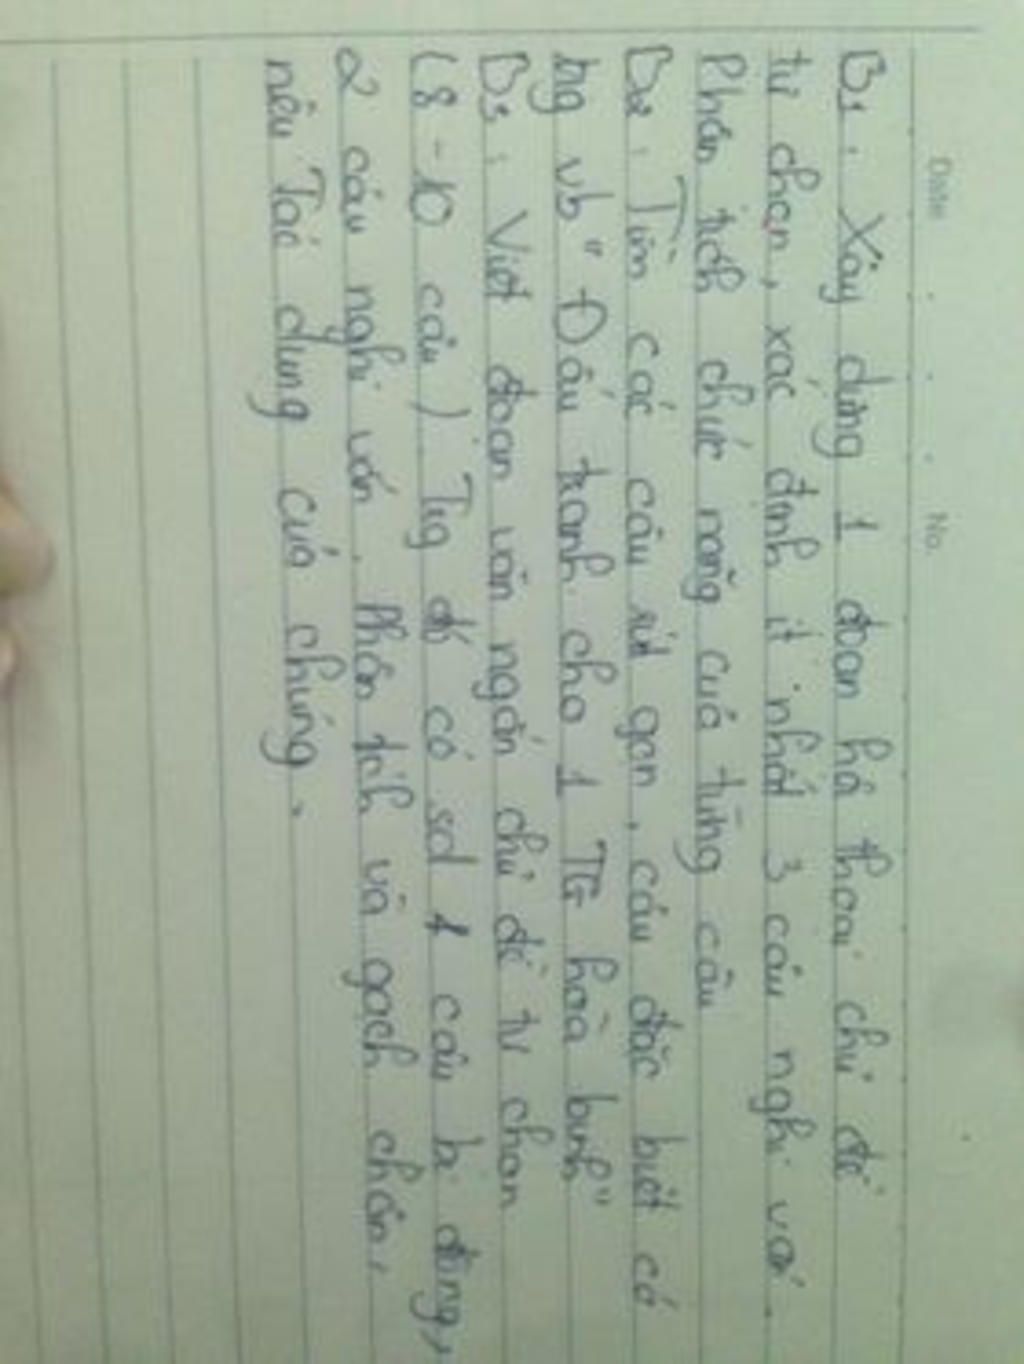 Date No.
B1. Xây dựng 1 đoạn hội thoại chủ đề
tự chọn, xác định ít nhất 3 câu nghi vấn.
Phân tích chức năng của từng câu
B2. Tìm các câu rút gọn, câu đặc biệt có
vb "Đấu tranh cho 1 TG hòa bình"
B3. Viết đoạn văn ngắn chủ đề tự chọn
(8-10 câu). Trg đó có sd 1 câu bị động,
2 câu nghi vấn. Phân tích và gạch chân,
nêu Tác dụng của chúng.